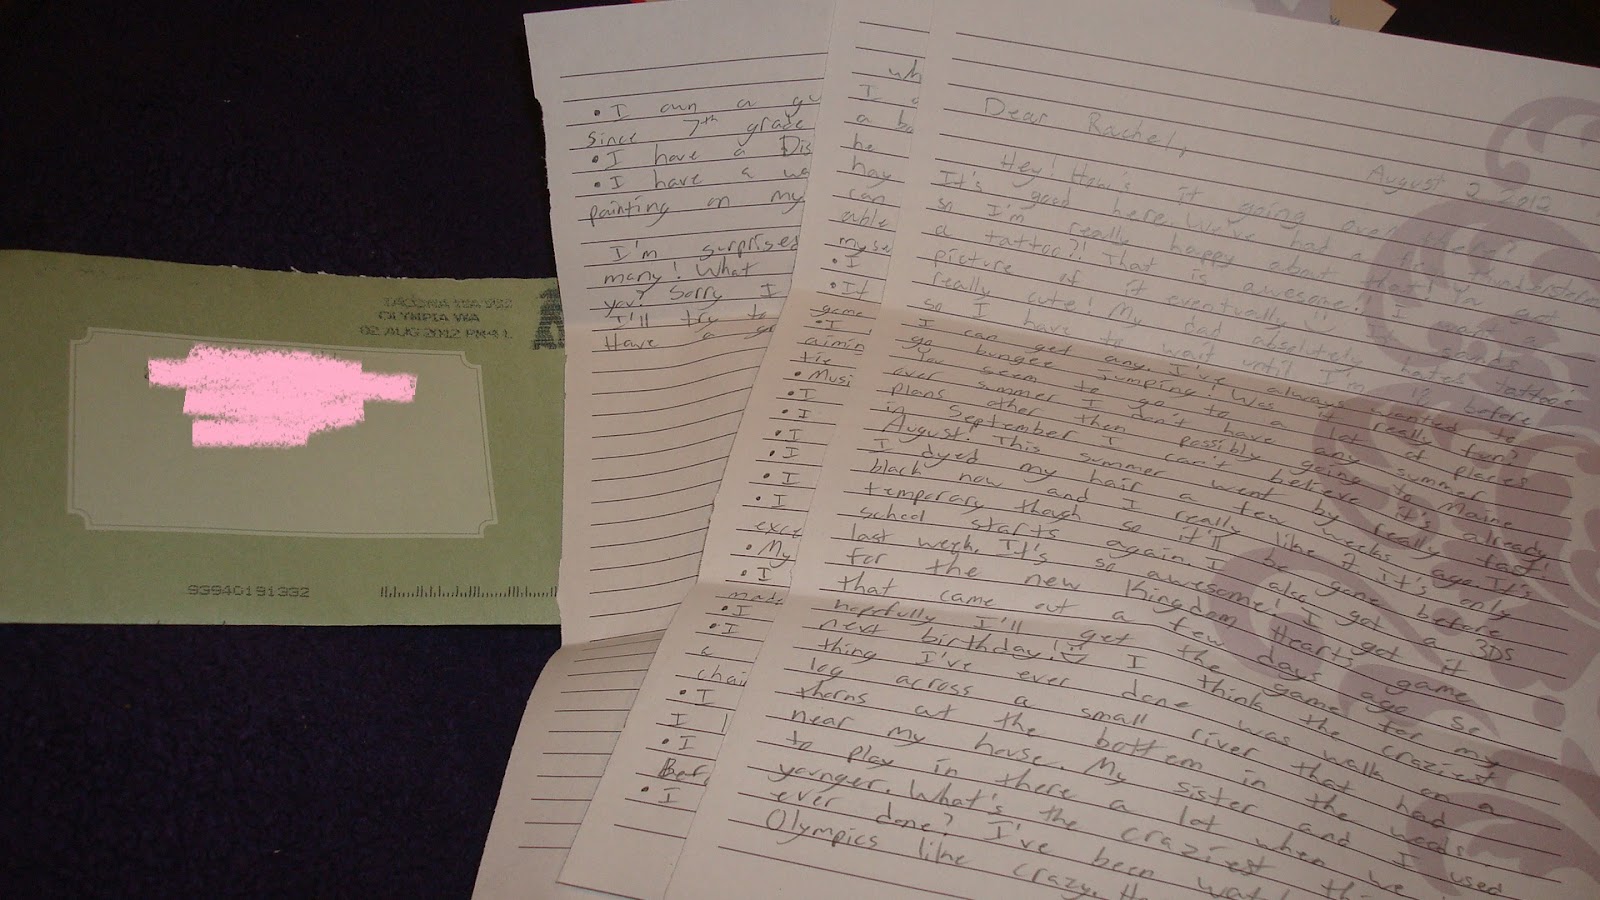 TACOMA WA 983
OLYMPIA WA
02 AUG 2012 PM 4 L
93940191332
• I own a gu
since 7th grade
• I have a Dis
• I have a wa
painting on my
I'm surprised
many! What
you? Sorry I
I'll try to
Have a gr
wh
I
a ba
he
hay
can
able
myse
• I
• It
game
• I
aimin
tie
• Musi
• I
• I
• I
• I
• I
• I
exce
• My
• I
made
• I
• I
a
chai
• I
I l
• I
Bar
• I
Dear Rachel,
August 2 2012
Hey! How's it going over there?
It's good here. We've had a few thunderstorms
so I'm really happy about that! Ya got
a tattoo?! That is awesome! I want a
picture of it eventually. It sounds
really cute! My dad absolutely hates tattoo's
so I have to wait until I'm 18 before
I can get any. I've always wanted to
go bungee jumping! Was it really fun?
You seem to go to a lot of places
over summer. I don't have any summer
plans other then possibly going to Maine
in September. I can't believe it's already
August! This summer went by really fast!
I dyed my hair a few weeks ago. It's
black now and I really like it. It's only
temporary though so it'll be gone before
school starts again. I also got a 3DS
last week. It's so awesome! I got it
for the new Kingdom Hearts game
that came out a few days ago so
hopefully I'll get the game for my
next birthday! I think the craziest
thing I've ever done was walk on a
log across a small river that had
thorns at the bottem in the woods
near my house. My sister and I used
to play in there a lot when we
younger. What's the craziest thi
ever done? I've been wat
Olympics like crazy.